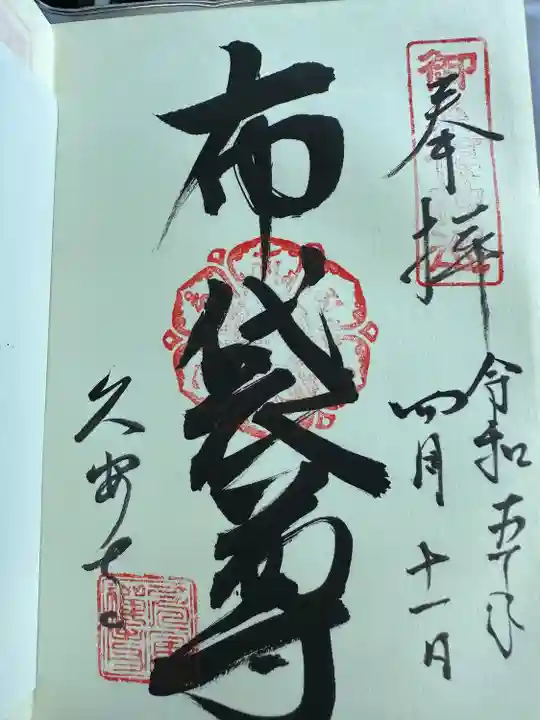 奉拝
令和五年
四月十一日
布袋尊
久安寺